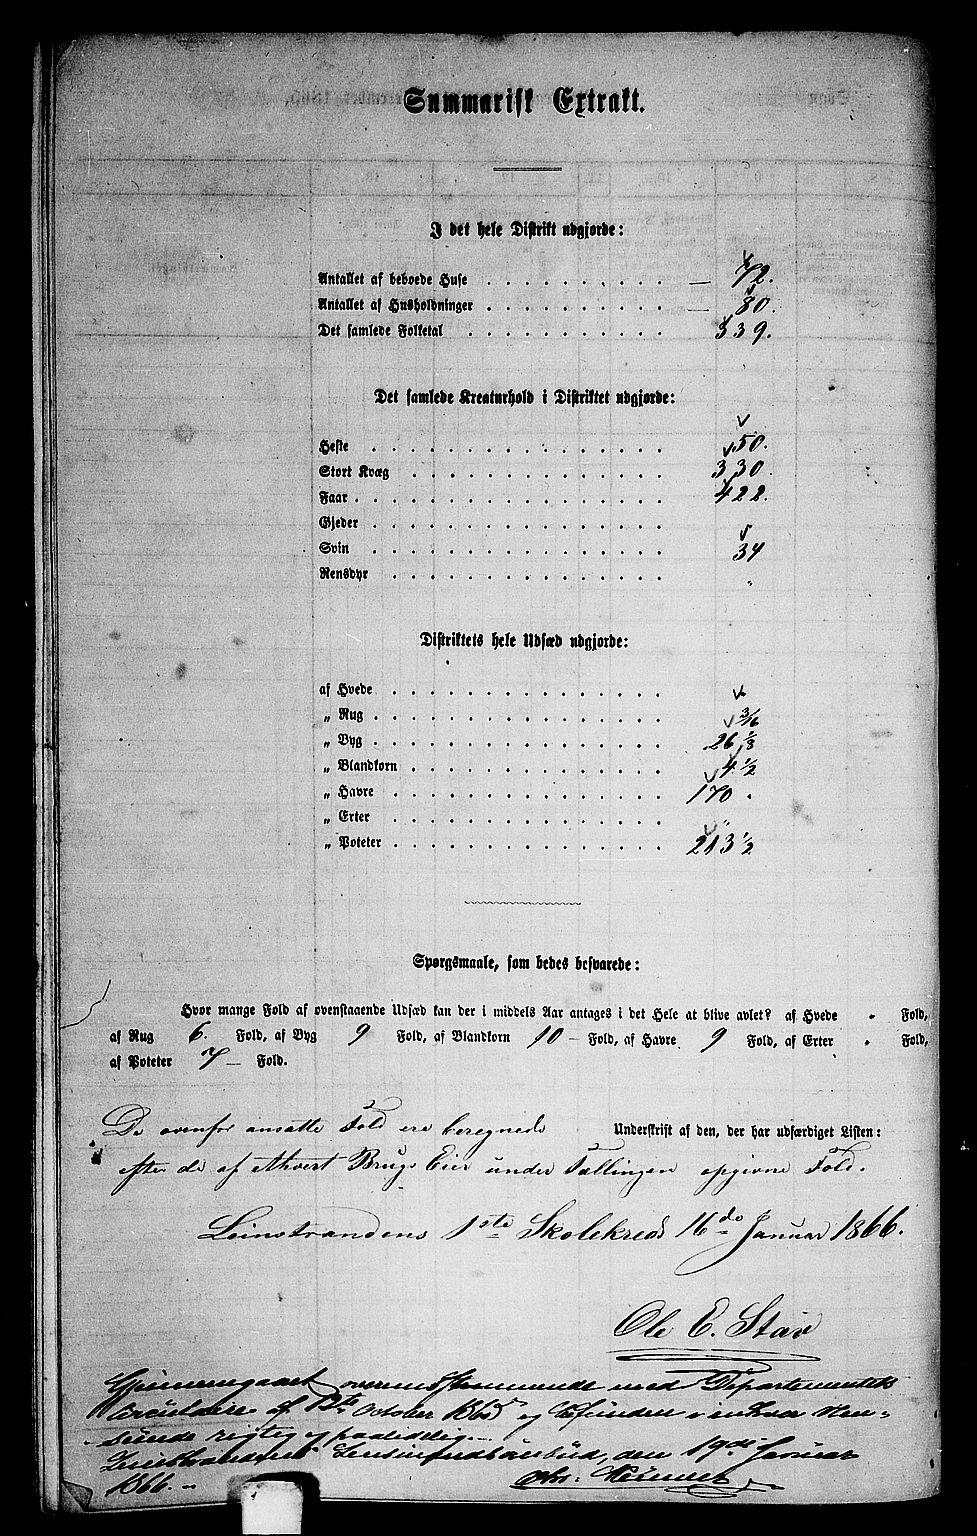 Summarisk Extrakt.
I det hele Distrikt udgjorde:
Antallet af beboede Huse . . . . . . . . . . — 72.
Antallet af Husholdninger . . . . . . . . . . — 80.
Det samlede Folketal . . . . . . . . . . . 339.
Det samlede Kreaturhold i Distriktet udgjorde:
Heste . . . . . . . . . . . . . . . . 50.
Stort Kvæg . . . . . . . . . . . . . . 330.
Faar . . . . . . . . . . . . . . . . . 422.
Gjeder . . . . . . . . . . . . . . . .
Svin . . . . . . . . . . . . . . . . 34
Rensdyr . . . . . . . . . . . . . . . "
Distriktets hele Udsæd udgjorde:
af Hvede . . . . . . . . . . . . . . .
„ Rug . . . . . . . . . . . . . . . . 3/16
„ Byg . . . . . . . . . . . . . . . . 26 1/8
„ Blandkorn . . . . . . . . . . . . . . 4 1/2
„ Havre . . . . . . . . . . . . . . . 170 "
„ Erter . . . . . . . . . . . . . . . "
„ Poteter . . . . . . . . . . . . . . . 213 1/2
Spørgsmaale, som bedes besvarede:
Hvor mange Fold af ovenstaaende Udsæd kan der i middels Aar antages i det Hele at blive avlet? af Hvede " Fold,
af Rug 6. Fold, af Byg 9 Fold, af Blandkorn 10 — Fold, af Havre 9 Fold, af Erter " Fold,
af Poteter 7 — Fold.
De ovenfor ansatte Fold ere beregnede
Underskrift af den, der har udfærdiget Listen:
efter de af ethvert Brugs Eier under Tællingen opgivne Fold.
Leinstrandens 1ste Skolekreds 16de Januar 1866.
Ole E. Stav
Gjennemgaaet, overensstemmende med Departementets
Circulaire af 12te October 1865 og befunden i enhver Hen-
seende rigtig og paalidelig. —
Leinstrandens den 19de Januar
1866. —